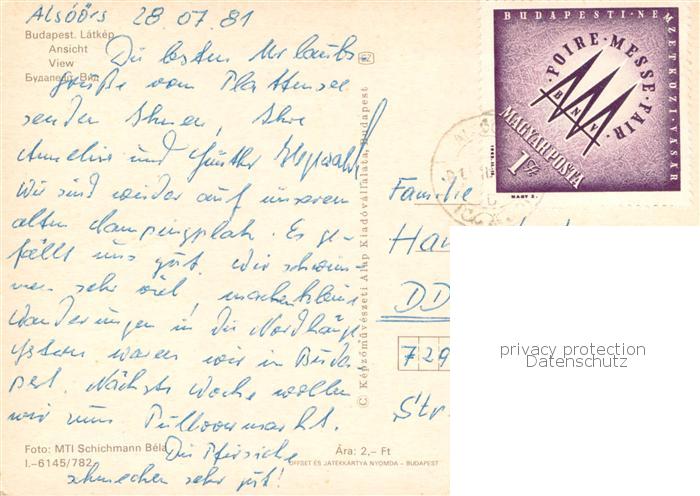 Alsóörs 28.07.81
Budapest. Látkép
Ansicht
View
Будапешт. Вид
Die besten Urlaubs-
grüße vom Plattensee
senden Ihnen, Ihre
Annelies und Günther
Wir sind wieder auf unserem
alten Campingplatz. Es ge-
fällt uns gut. Wir schwim-
men sehr viel, machen kleine
Wanderungen in die Nordhänge
gestern waren wir in Buda-
pest. Nächste Woche wollen
wir zum Pullovermarkt.
Die Pfirsiche
schmecken sehr gut!
Foto: MTI Schichmann Béla
I.-6145/782
Ára: 2,- Ft
OFFSET ÉS JÁTÉKKÁRTYA NYOMDA – BUDAPEST
© Képzőművészeti Alap Kiadóvállalata, Budapest
BUDAPESTI NEMZETKÖZI VÁSÁR
FOIRE·MESSE·FAIR
BNV
MAGYAR POSTA
1 Ft
NAGY Z.
Familie
Han
DD
729
Str
privacy protection
Datenschutz